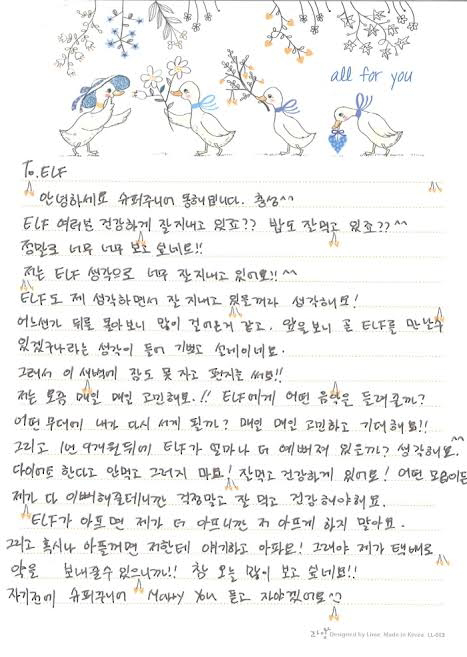 all for you
To. ELF
안녕하세요 슈퍼주니어 동해입니다. 충성^^
ELF 여러분 건강하게 잘지내고 있죠?? 밥도 잘먹고 있죠??^^
정말로 너무 너무 보고 싶네요!!
저는 ELF 생각으로 너무 잘지내고 있어요!! ^^
ELF도 제 생각하면서 잘 지내고 있을꺼라 생각해요!
어느선가 뒤를 돌아보니 많이 걸어온거 같고. 앞을보니 곧 ELF를 만날수
있겠구나라는 생각이 들어 기쁘고 설레이네요.
그래서 이 새벽에 잠도 못 자고 편지를 써요!!
저는 요즘 매일 매일 고민해요.!! ELF에게 어떤 음악을 들려줄까?
어떤 무대에 내가 다시 서게 될까? 매일 매일 고민하고 기대해요!!
그리고 1년 9개월뒤에 ELF가 얼마나 더 예뻐져 있을까? 생각해요.^^
다이어트 한다고 안먹고 그러지 마요! 잘먹고 건강하게 있어요! 어떤 모습이든
제가 다 이뻐해줄테니깐 걱정말고 잘 먹고 건강해야해요.
ELF가 아프면 제가 더 아프니깐 저 아프게 하지 말아요.
그리고 혹시나 아플꺼면 저한테 얘기하고 아파요! 그래야 제가 택배로
약을 보내줄수 있으니까!! 참 오늘 많이 보고 싶네요!!
자기전에 슈퍼주니어 Marry You 듣고 자야겠어요^^
라임 Designed by Lime Made in Korea LL-003